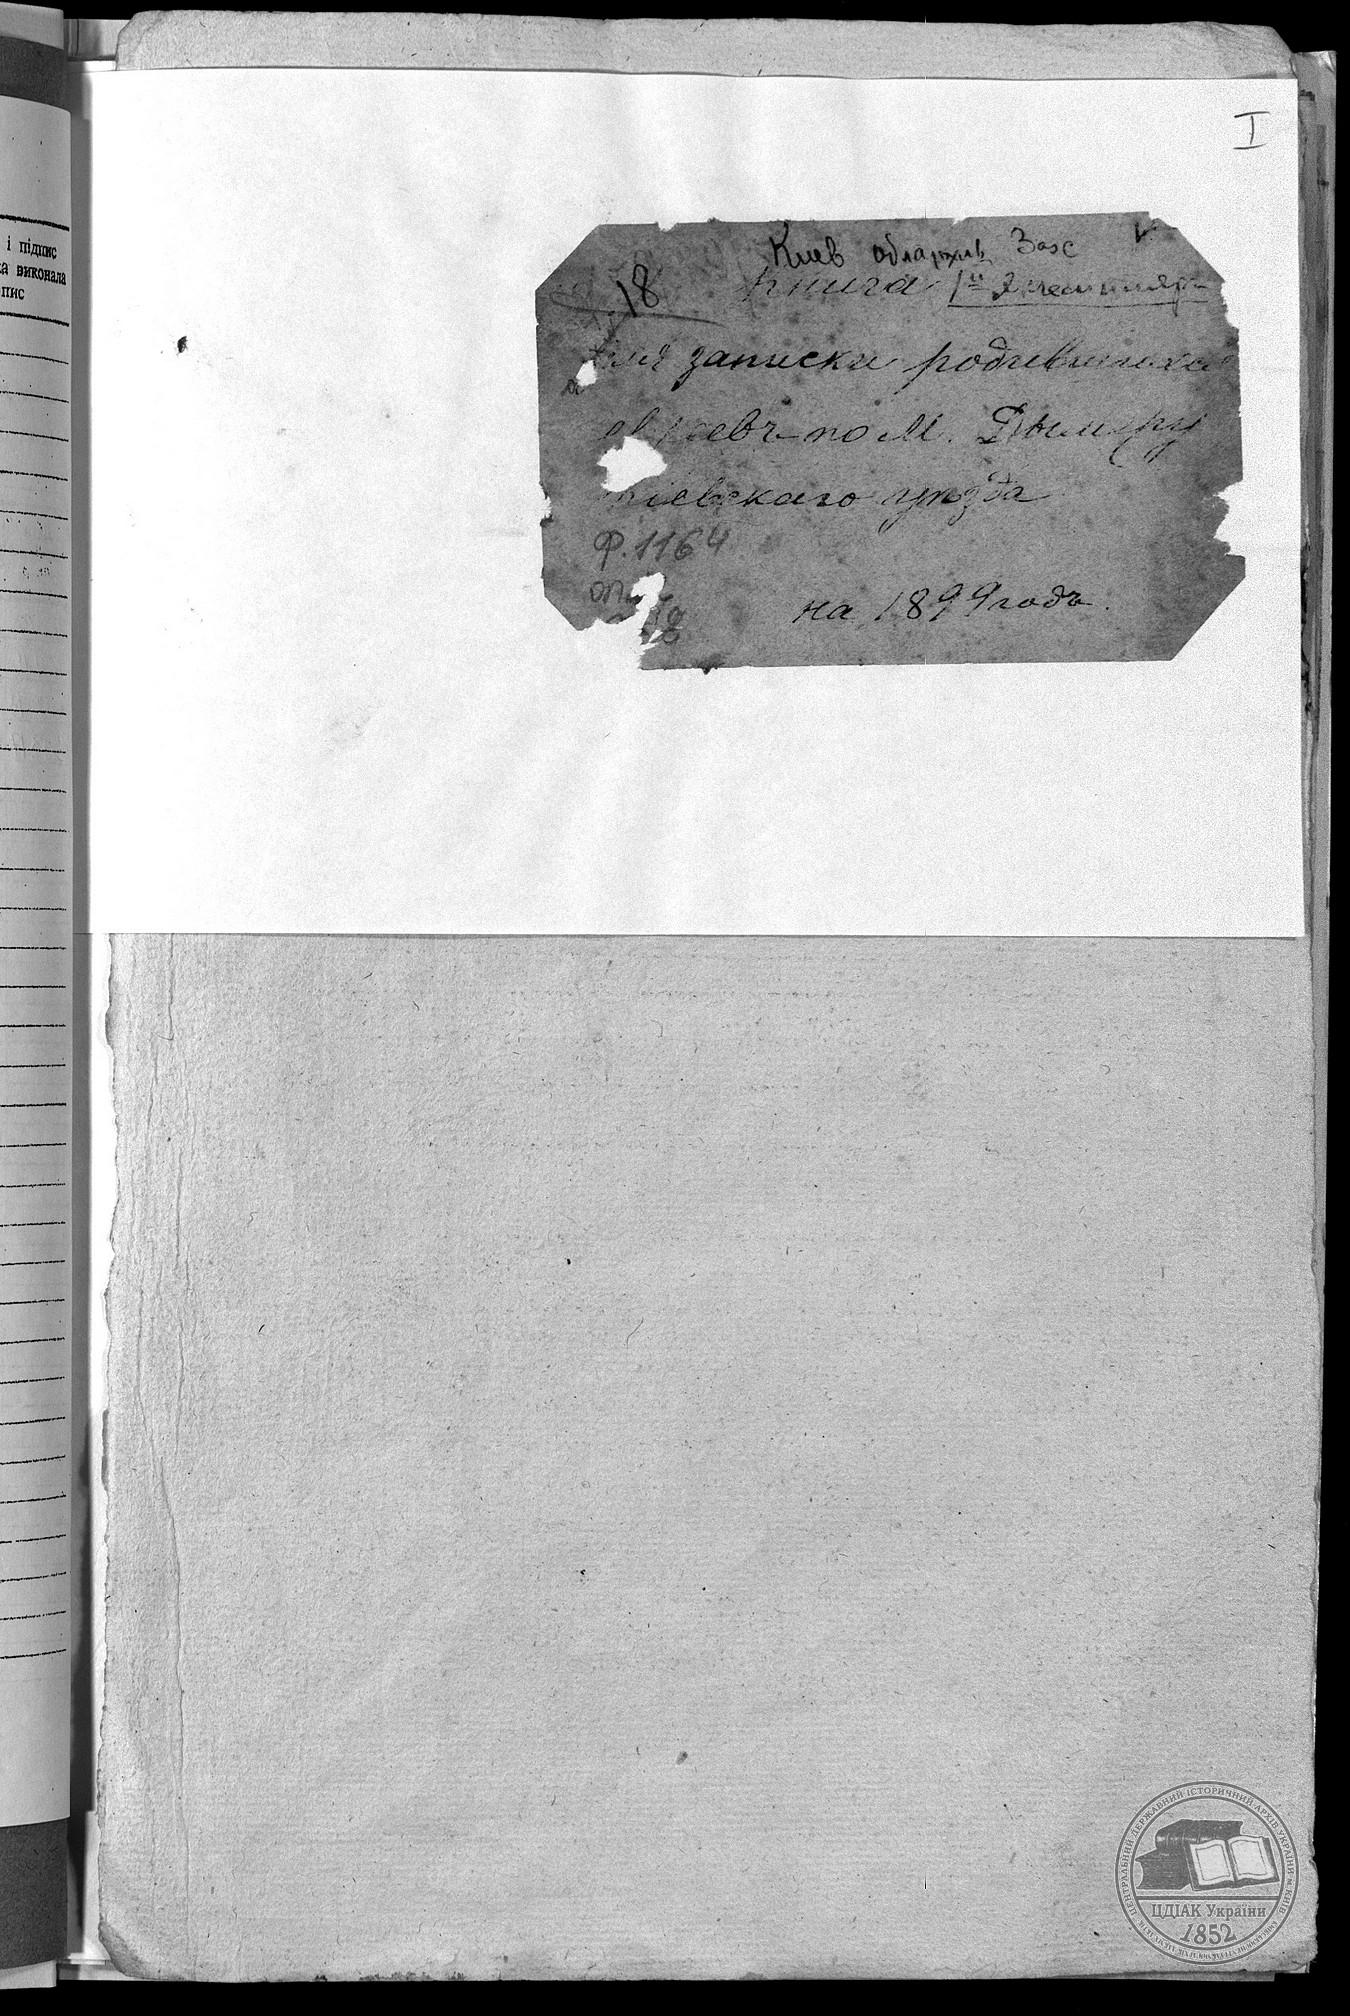 і підпис
ка виконала
пис
I
Киев облархив Загс
18
Книга 1й Экземпляр
для записки родившихся
евреевъ по М. Дымеру
Кіевскаго уѣзда
Ф. 1164
оп.
18
на 1899 годъ.
ЦЕНТРАЛЬНИЙ ДЕРЖАВНИЙ ІСТОРИЧНИЙ АРХІВ УКРАЇНИ м. КИЇВ
ЦДІАК України
1852